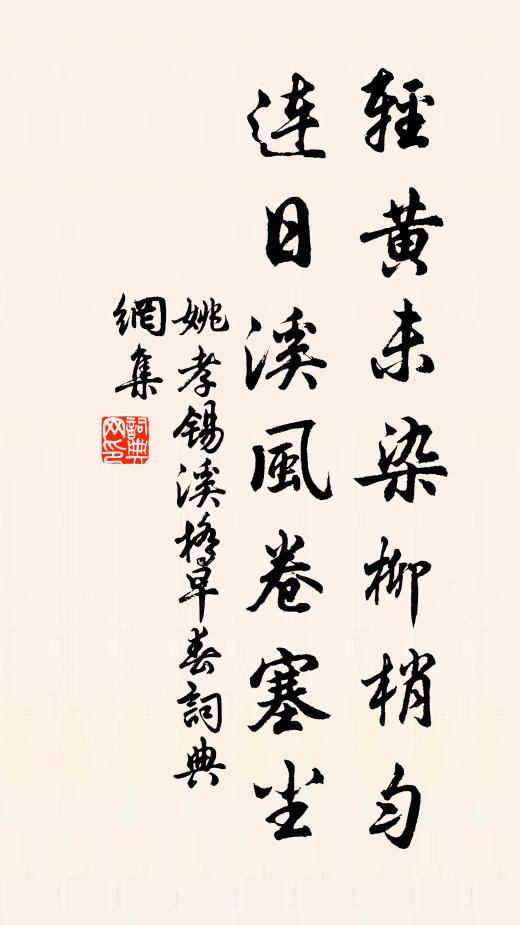 輕黃未染柳梢勻
連日溪風卷塞尘
姚孝锡溪橋早春詞典
網集
詞典網印